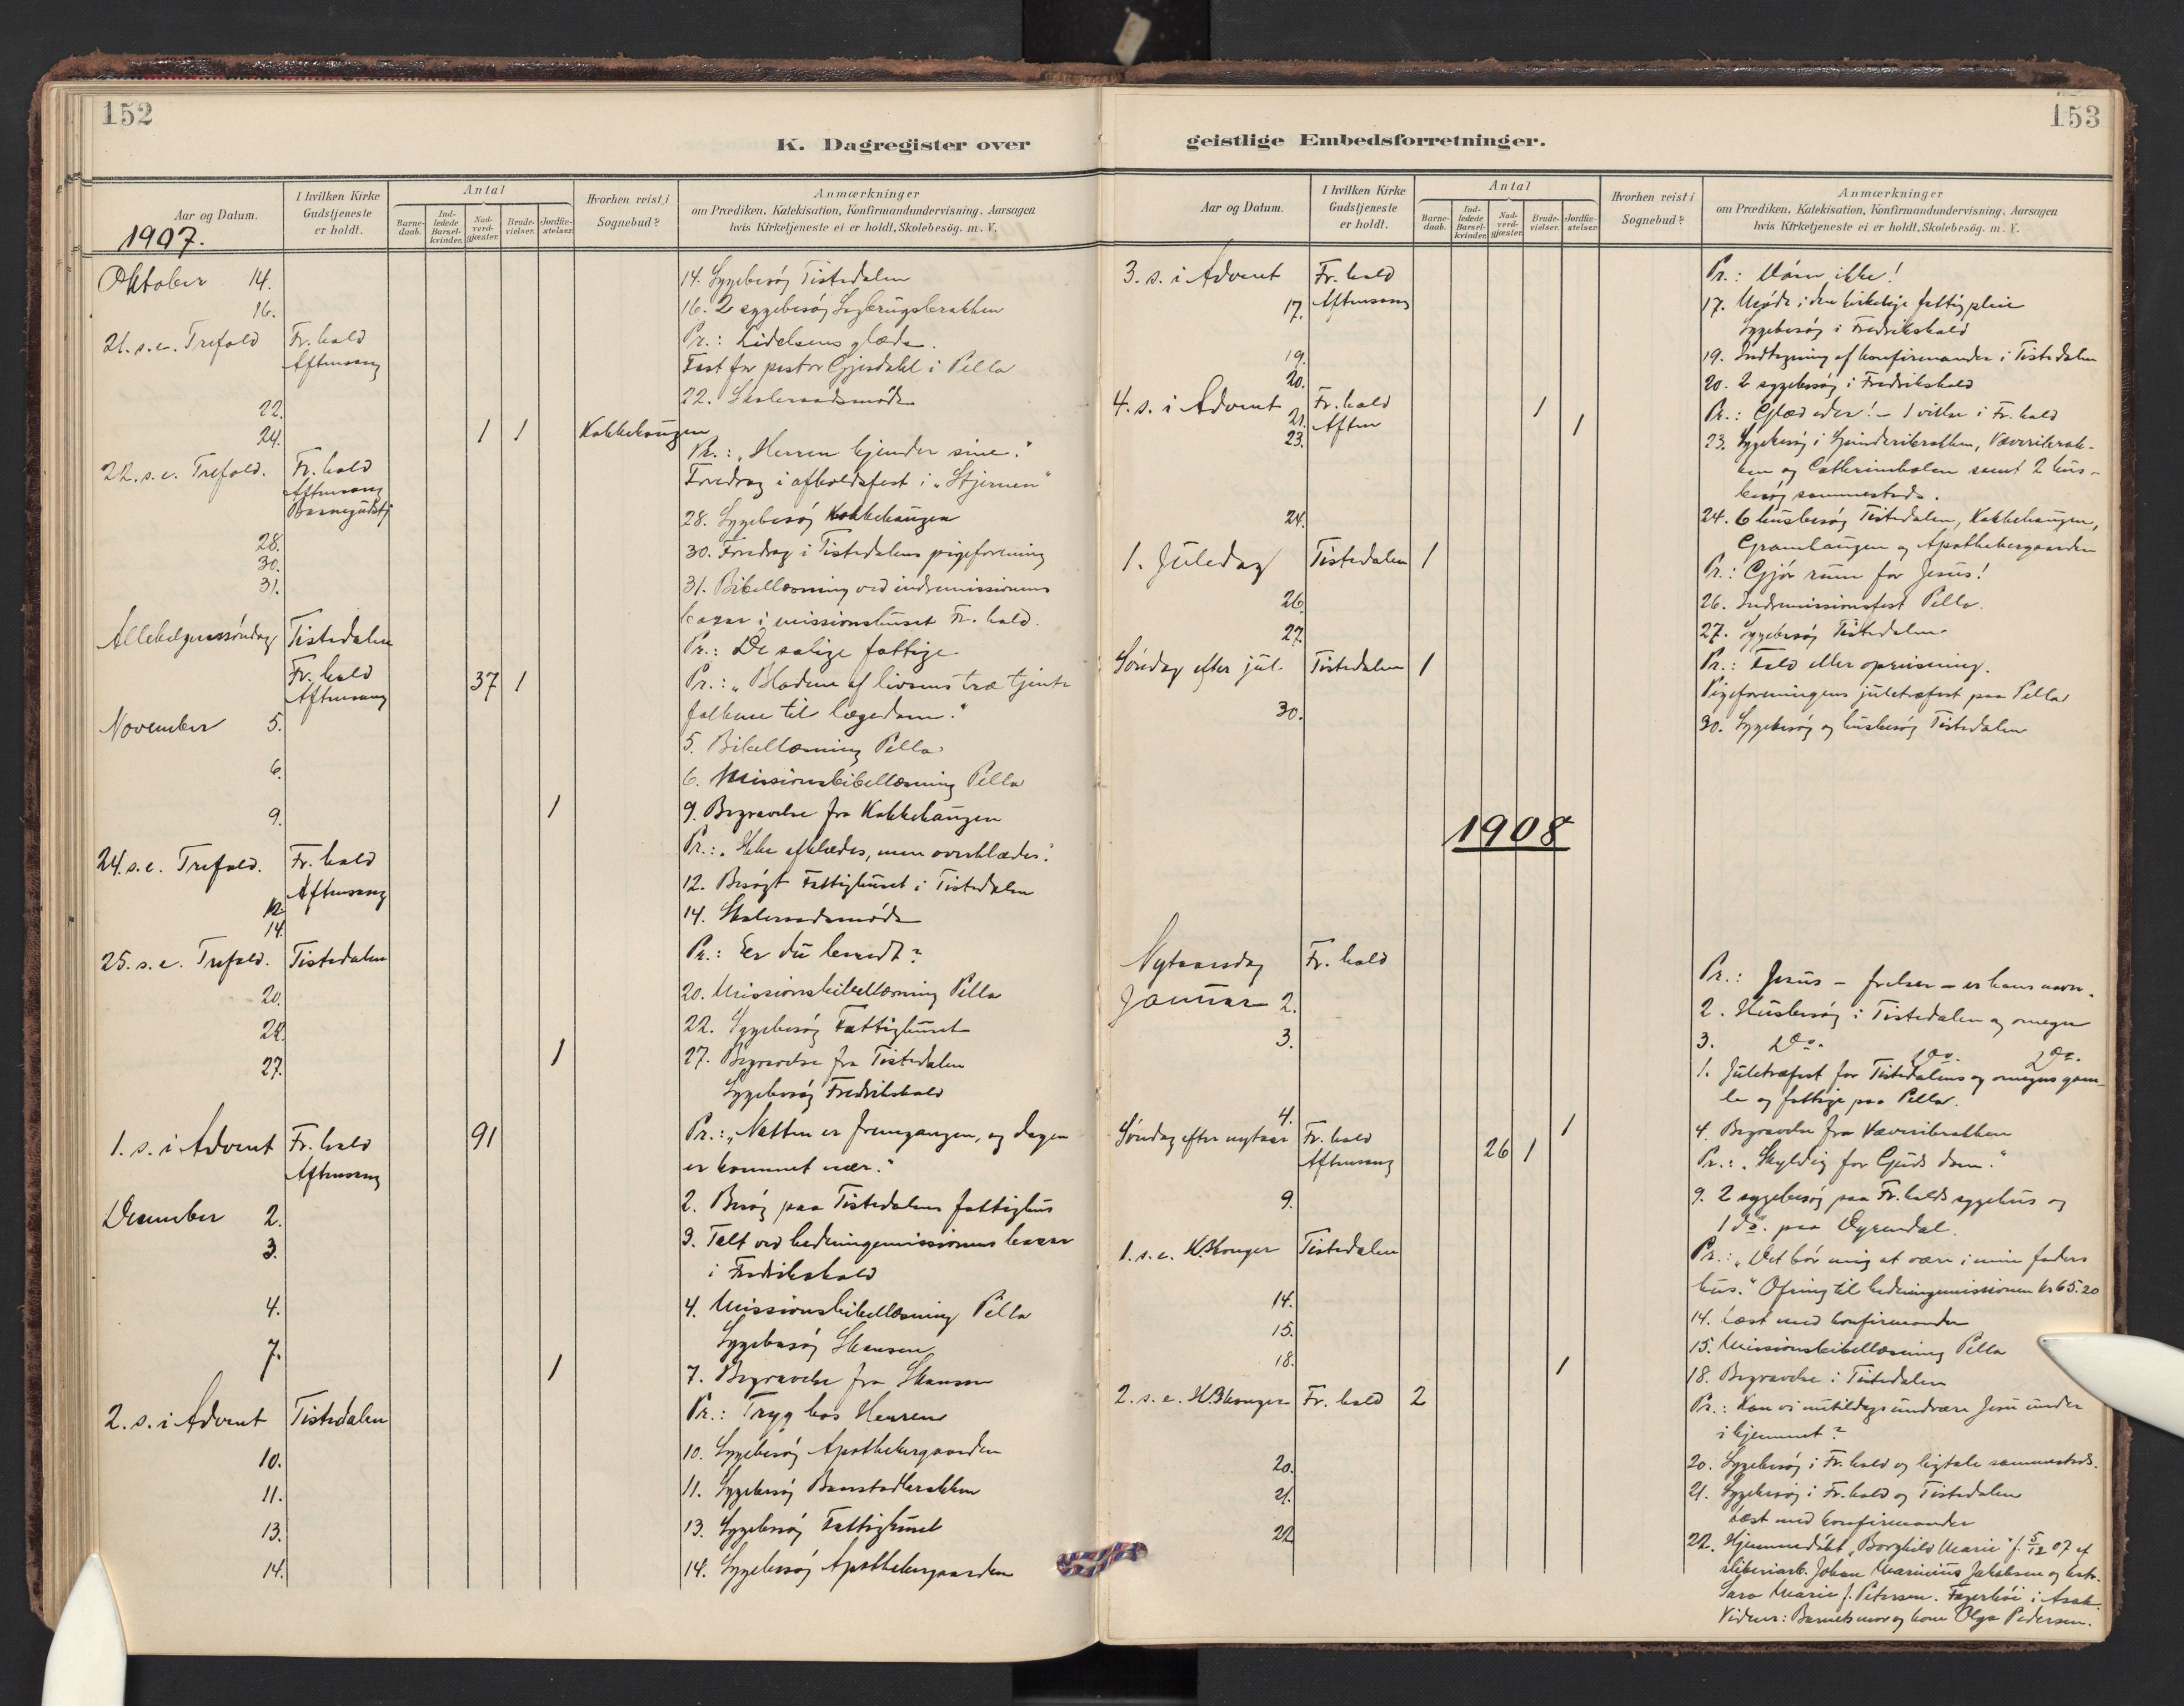 152
K. Dagregister over
Aar og Datum.
I hvilken Kirke Gudstjeneste er holdt.
Antal
Barne-daab.
Ind-ledede Barsel-kvinder.
Nad-verd-gjæster.
Brude-vielser.
Jordfæ-stelser.
Hvorhen reist i Sognebud?
Anmærkninger
om Prædiken, Katekisation, Konfirmandundervisning, Aarsagen
hvis Kirketjeneste ei er holdt, Skolebesög. m. V.
1907.
Oktober 14. 14. Sygebesøg Tistedalen
16. 16. 2 sygebesøg
21. s.e. Trefold Fr. hald Pr.: Lidelsens glæde.
Aftensang Fest for pastor Gjesdahl i Pella
22. 22. Skoleraadsmøde
24. 1 1 Kokkehaugen
22. s.e. Trefold. Fr. hald Pr.: "Herren kjender sine."
Aftensang Foredrag i afholdsfest i "Stjernen"
Barnegudstj.
28. 28. Sygebesøg Kokkehaugen
30. 30. Foredrag i Tistedalens pigeforening
31. 31. Bibellæsning ved indremissionens
basar i missionshuset Fr. hald.
Allehelgenssøndag Tistedalen Pr.: De salige fattige
Fr. hald 37 1 Pr.: "Bladene af livsens træ tjente
Aftensang folkene til lægedom."
November 5. 5. Bibellæsning Pella
6. 6. Missionsbibellæsning Pella
9. 1 9. Begravelse fra Kokkehaugen
24. s.e. Trefold. Fr. hald Pr.: "Ikke afklædes, men overklædes".
Aftensang
12. 12. Besøgt Fattighuset i Tistedalen
14. 14. Skoleraadsmøde
25. s.e. Trefold. Tistedalen Pr.: Er du beredt?
20. 20. Missionsbibellæsning Pella
22. 22. Sygebesøg Fattighuset
27. 1 27. Begravelse fra Tistedalen
Sygebesøg Fredrikshald
1. s. i Advent Fr. hald 91 Pr.: "Natten er fremgangen, og dagen
Aftensang er kommet nær."
December 2. 2. Besøg paa Tistedalens fattighus
3. 3. Talt ved hedningemissionens basar
i Fredrikshald
4. 4. Missionsbibellæsning Pella
Sygebesøg Skansen
7. 1 7. Begravelse fra Skansen
2. s. i Advent Tistedalen Pr.: Tryg hos Herren
10. 10. Sygebesøg Apothekergaarden
11. 11. Sygebesøg
13. 13. Sygebesøg Fattighuset
14. 14. Sygebesøg Apothekergaarden
153
geistlige Embedsforretninger.
Aar og Datum.
I hvilken Kirke Gudstjeneste er holdt.
Antal
Barne-daab.
Ind-ledede Barsel-kvinder.
Nad-verd-gjæster.
Brude-vielser.
Jordfæ-stelser.
Hvorhen reist i Sognebud?
Anmærkninger
om Prædiken, Katekisation, Konfirmandundervisning, Aarsagen
hvis Kirketjeneste ei er holdt, Skolebesög. m. V.
3. s. i Advent Fr. hald Pr.: ikke!
Aftensang
17. 17. Møde i den kirkelige fattigpleie
Sygebesøg i Fredrikshald
19. 19. Indtegning af konfirmander i Tistedalen
20. 20. 2 sygebesøg i Fredrikshald
4. s. i Advent Fr. hald 1 Pr.: Glæd eder! - 1 vielse i Fr. hald
21. Aften
23. 1 23. Sygebesøg i Spinderibrakken, Væveribrak-
ken og Cathrineholm samt 2 hus-
besøg sammesteds.
24. 24. 6 husbesøg Tistedalen, Kokkehaugen,
Granhaugen og Apothekergaarden
1. Juledag Tistedalen 1 Pr.: Gjør rum for Jesus!
26. 26. Indremissionsfest Pella.
27. 27. Sygebesøg Tistedalen
Søndag efter jul. Tistedalen 1 Pr.: Fald eller opreisning.
Pigeforeningens juletræfest paa Pella
30. 30. Sygebesøg og husbesøg Tistedalen
1908
Nytaarsdag Fr. hald Pr.: Jesus - frelser - er hans navn.
Januar 2. 2. Husbesøg i Tistedalen og omegn
3. 3. Do. Do. Do.
1. Juletræfest for Tistedalens og omegns gam-
le og fattige paa Pella.
4. 1 4. Begravelse fra Væveribrakken
Søndag efter nytaar Fr. hald 26 1 Pr.: "Skyldig for Guds dom."
Aftensang
9. 9. 2 sygebesøg paa Fr. halds sygehus og
1 do. paa
1. s. e. H3konger Tistedalen Pr.: "Det bør mig at være i min faders
hus." Ofring til hedningemissionen kr 65.20
14. 14. Læst med konfirmander
15. 15. Missionsbibellæsning Pella
18. 1 18. Begravelse i Tistedalen
2. s. e. H3konger Fr. hald 2 Pr.: Kan vi nutildags undvære Jesu under
i hjemmet?
20. 20. Sygebesøg i Fr. hald og ligtale sammesteds.
21. 21. Sygebesøg i Fr. hald og Tistedalen
Læst med konfirmander
22. 22. Hjemmedøbt "Borghild Marie" f. 5/12 07 af
sliberiarb. Johan Marinius Jakobsen og hstr.
Sara Marie f. Petersen. Fagerhøi i Asak.
Vidner: Barnets mor og kone Olga Pedersen.